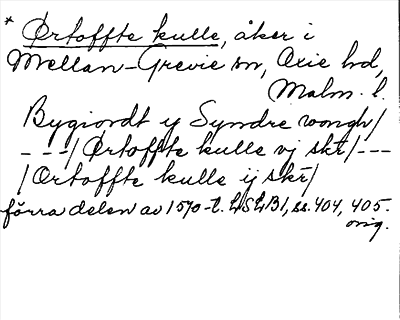 * Ørtoffte kulle, åker i
Mellan-Grevie sn, Oxie hd,
Malm. l.
Bygiordt ij Syndre wongh/
---/Ørtoffte kulle vj skr/---
/Ortoffte kulle ij skr/
förra delen av 1570-t. LSLB1, ss. 404, 405.
orig.